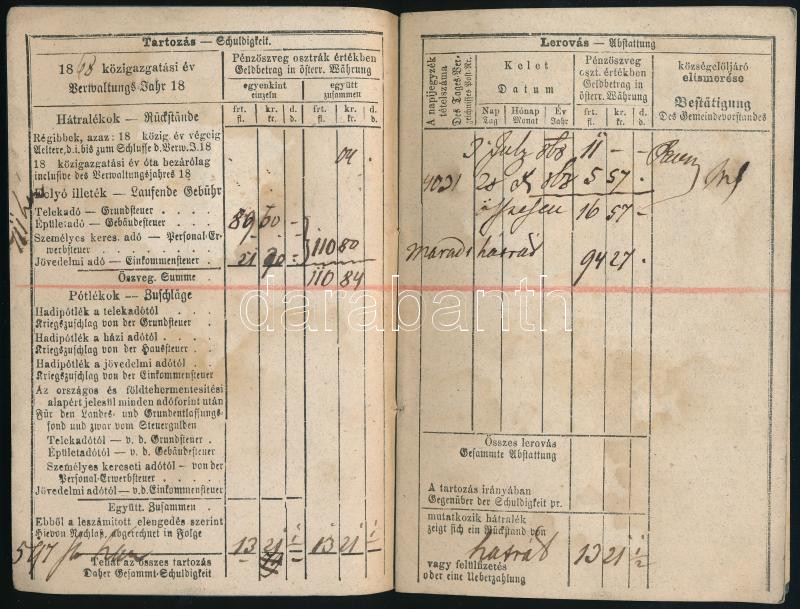 Tartozás — Schuldigkeit.
1868 közigazgatási év
Verwaltungs-Jahr 18
Pénzöszveg osztrák értékben
Geldbetrag in österr. Währung
egyenkint
einzeln
együtt
zusammen
frt. kr. d. frt. kr. d.
fl. kr. d. fl. kr. d.
Hátralékok — Rückstände
Régibbek, azaz: 18 közig. év végeig
Aeltere, d.i. bis zum Schlusse d. Verw. J. 18
18 közigazgatási év óta bezárólag
inclusive des Verwaltungsjahres 18
04
Folyó illeték — Laufende Gebühr
Telekadó — Grundsteuer
Épületadó — Gebäudesteuer
89 60 —
Személyes keres. adó — Personal-Er-
werbsteuer
110 80
Jövedelmi adó — Einkommensteuer
21 20 —
Öszveg. Summe
110 84
Pótlékok — Zuschläge
Hadipótlék a telekadótól
Kriegszuschlag von der Grundsteuer
Hadipótlék a házi adótól
Kriegszuschlag von der Haussteuer
Hadipótlék a jövedelmi adótól
Kriegszuschlag von der Einkommensteuer
Az országos és földtehermentesitési
alapért jelesül minden adóforint után
Für den Landes- und Grundentlastungs-
fond und zwar vom Steuergulden
Telekadótól — v. d. Grundsteuer
Épületadótól — v. d. Gebäudesteuer
Személyes kereseti adótól — von der
Personal-Erwerbsteuer
Jövedelmi adótól — v. d. Einkommensteuer
Együtt. Zusammen
Ebből a leszámitott elengedés szerint
Hievon Nachlaß, abgerechnet in Folge
13 21 ½ 13 21 ½
Tehát az összes tartozás
Daher Gesammt-Schuldigkeit
Lerovás — Abstattung
A napijegyzék
tételszáma
Des Tages-Ver-
zeichnisses Post-Nr.
Kelet
Datum
Nap Hónap Év
Tag Monat Jahr
Pénzöszveg
oszt. értékben
Geldbetrag
in österr. Währung
frt. kr. d.
fl. kr. d.
községelöljáró
elismerése
Bestätigung
Des Gemeindevorstandes
3 July 868 11 — —
4031 28 868 5 57
összesen 16 57 —
marad hátrál
94 27
Összes lerovás
Gesammte Abstattung
A tartozás irányában
Gegenüber der Schuldigkeit pr.
mutatkozik hátralék
zeigt sich ein Rückstand von
hátrál 13 21 ½
vagy felülfizetés
oder eine Ueberzahlung
darabanth